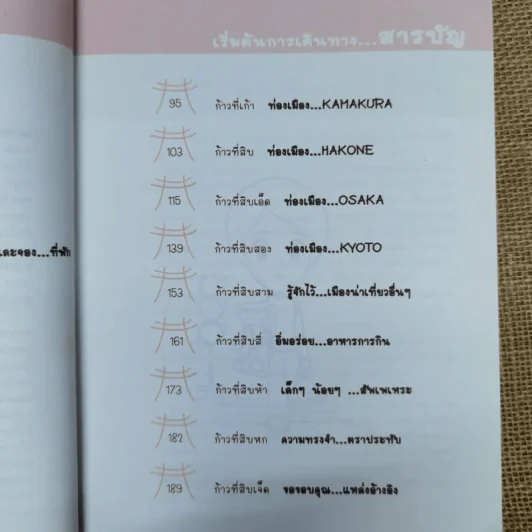 เริ่มต้นการเดินทาง...สารบัญ
95 ก้าวที่เก้า ท่องเมือง...KAMAKURA
103 ก้าวที่สิบ ท่องเมือง...HAKONE
115 ก้าวที่สิบเอ็ด ท่องเมือง...OSAKA
139 ก้าวที่สิบสอง ท่องเมือง...KYOTO
และจอง...ที่พัก
153 ก้าวที่สิบสาม รู้จักไว้...เมืองน่าเที่ยวอื่นๆ
161 ก้าวที่สิบสี่ อิ่มอร่อย...อาหารการกิน
173 ก้าวที่สิบห้า เล็กๆ น้อยๆ ...สัพเพเหระ
182 ก้าวที่สิบหก ความทรงจำ...ตราประทับ
189 ก้าวที่สิบเจ็ด ขอขอบคุณ...แหล่งอ้างอิง